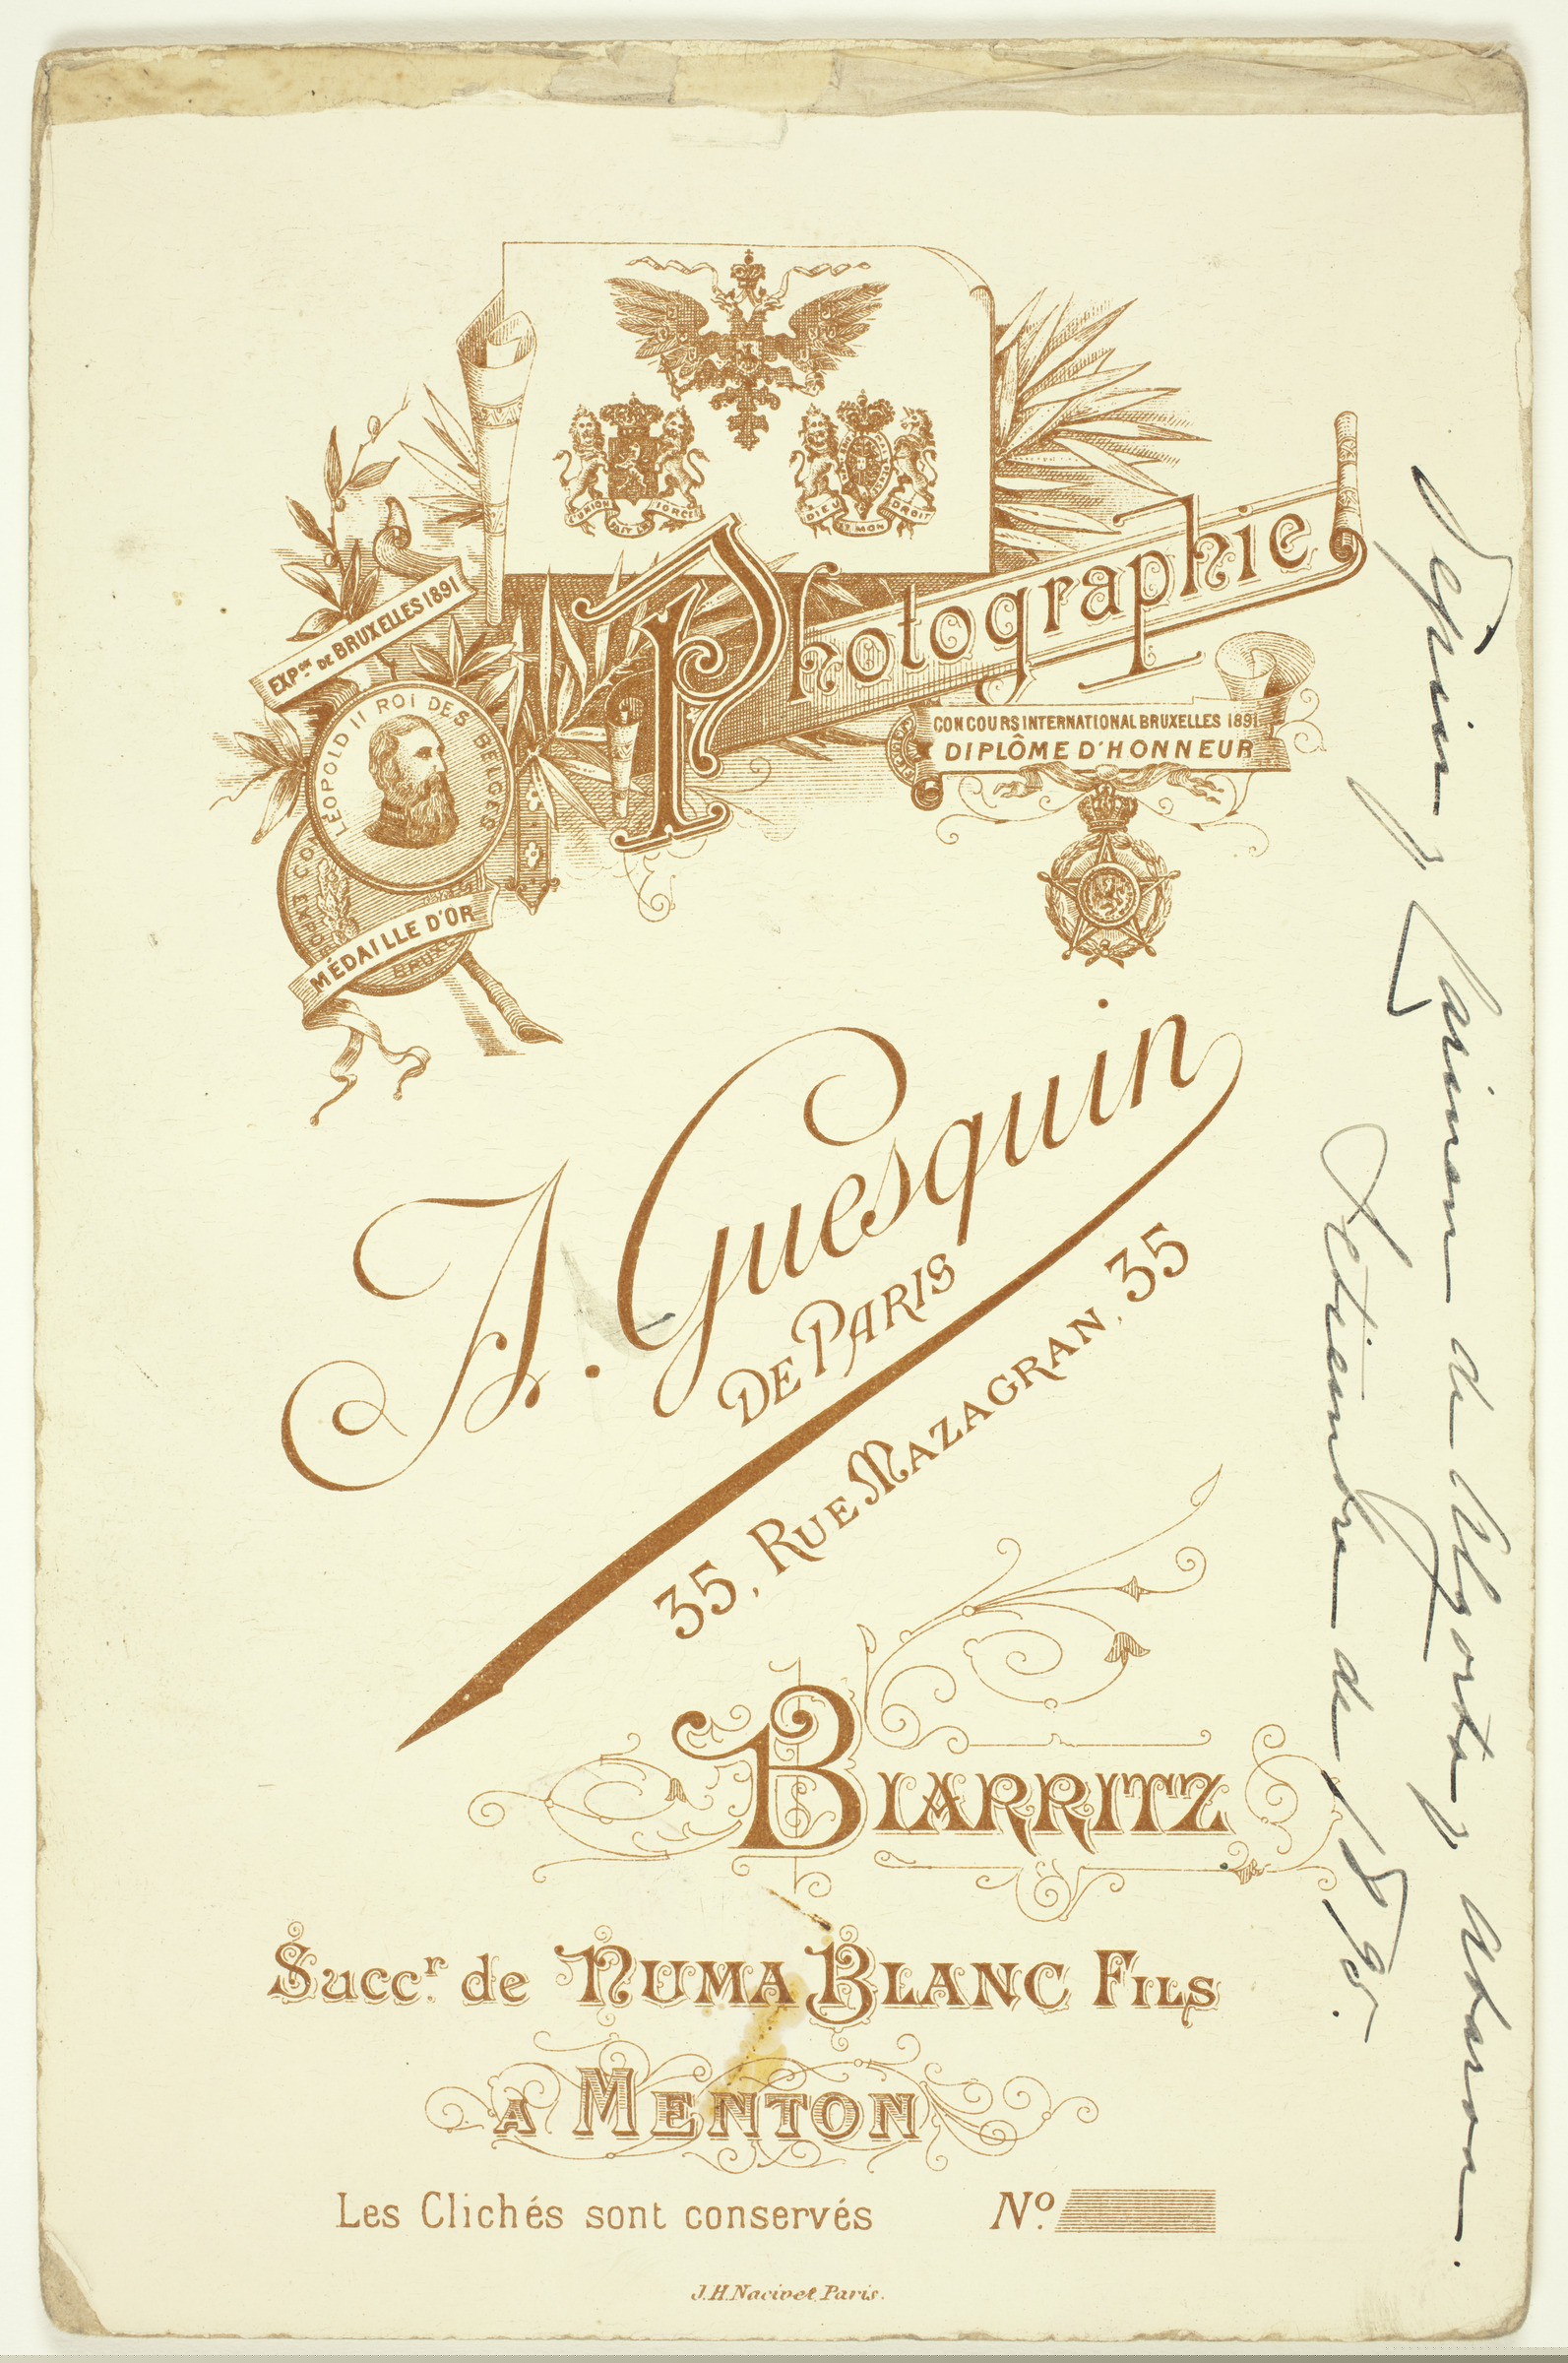 L'UNION FAIT LA FORCE
DIEU ET MON DROIT
Photographie
EXPON DE BRUXELLES 1891
LÉOPOLD II ROI DES BELGES
MÉDAILLE D'OR
CONCOURS INTERNATIONAL BRUXELLES 1891
DIPLÔME D'HONNEUR
J. Guesquin
DE PARIS
35, RUE MAZAGRAN, 35
BIARRITZ
Succr. de NUMA BLANC FILS
A MENTON
Les Clichés sont conservés No.
J.H. Nacivet, Paris.
y Carimen de
Setiembre de 1895.